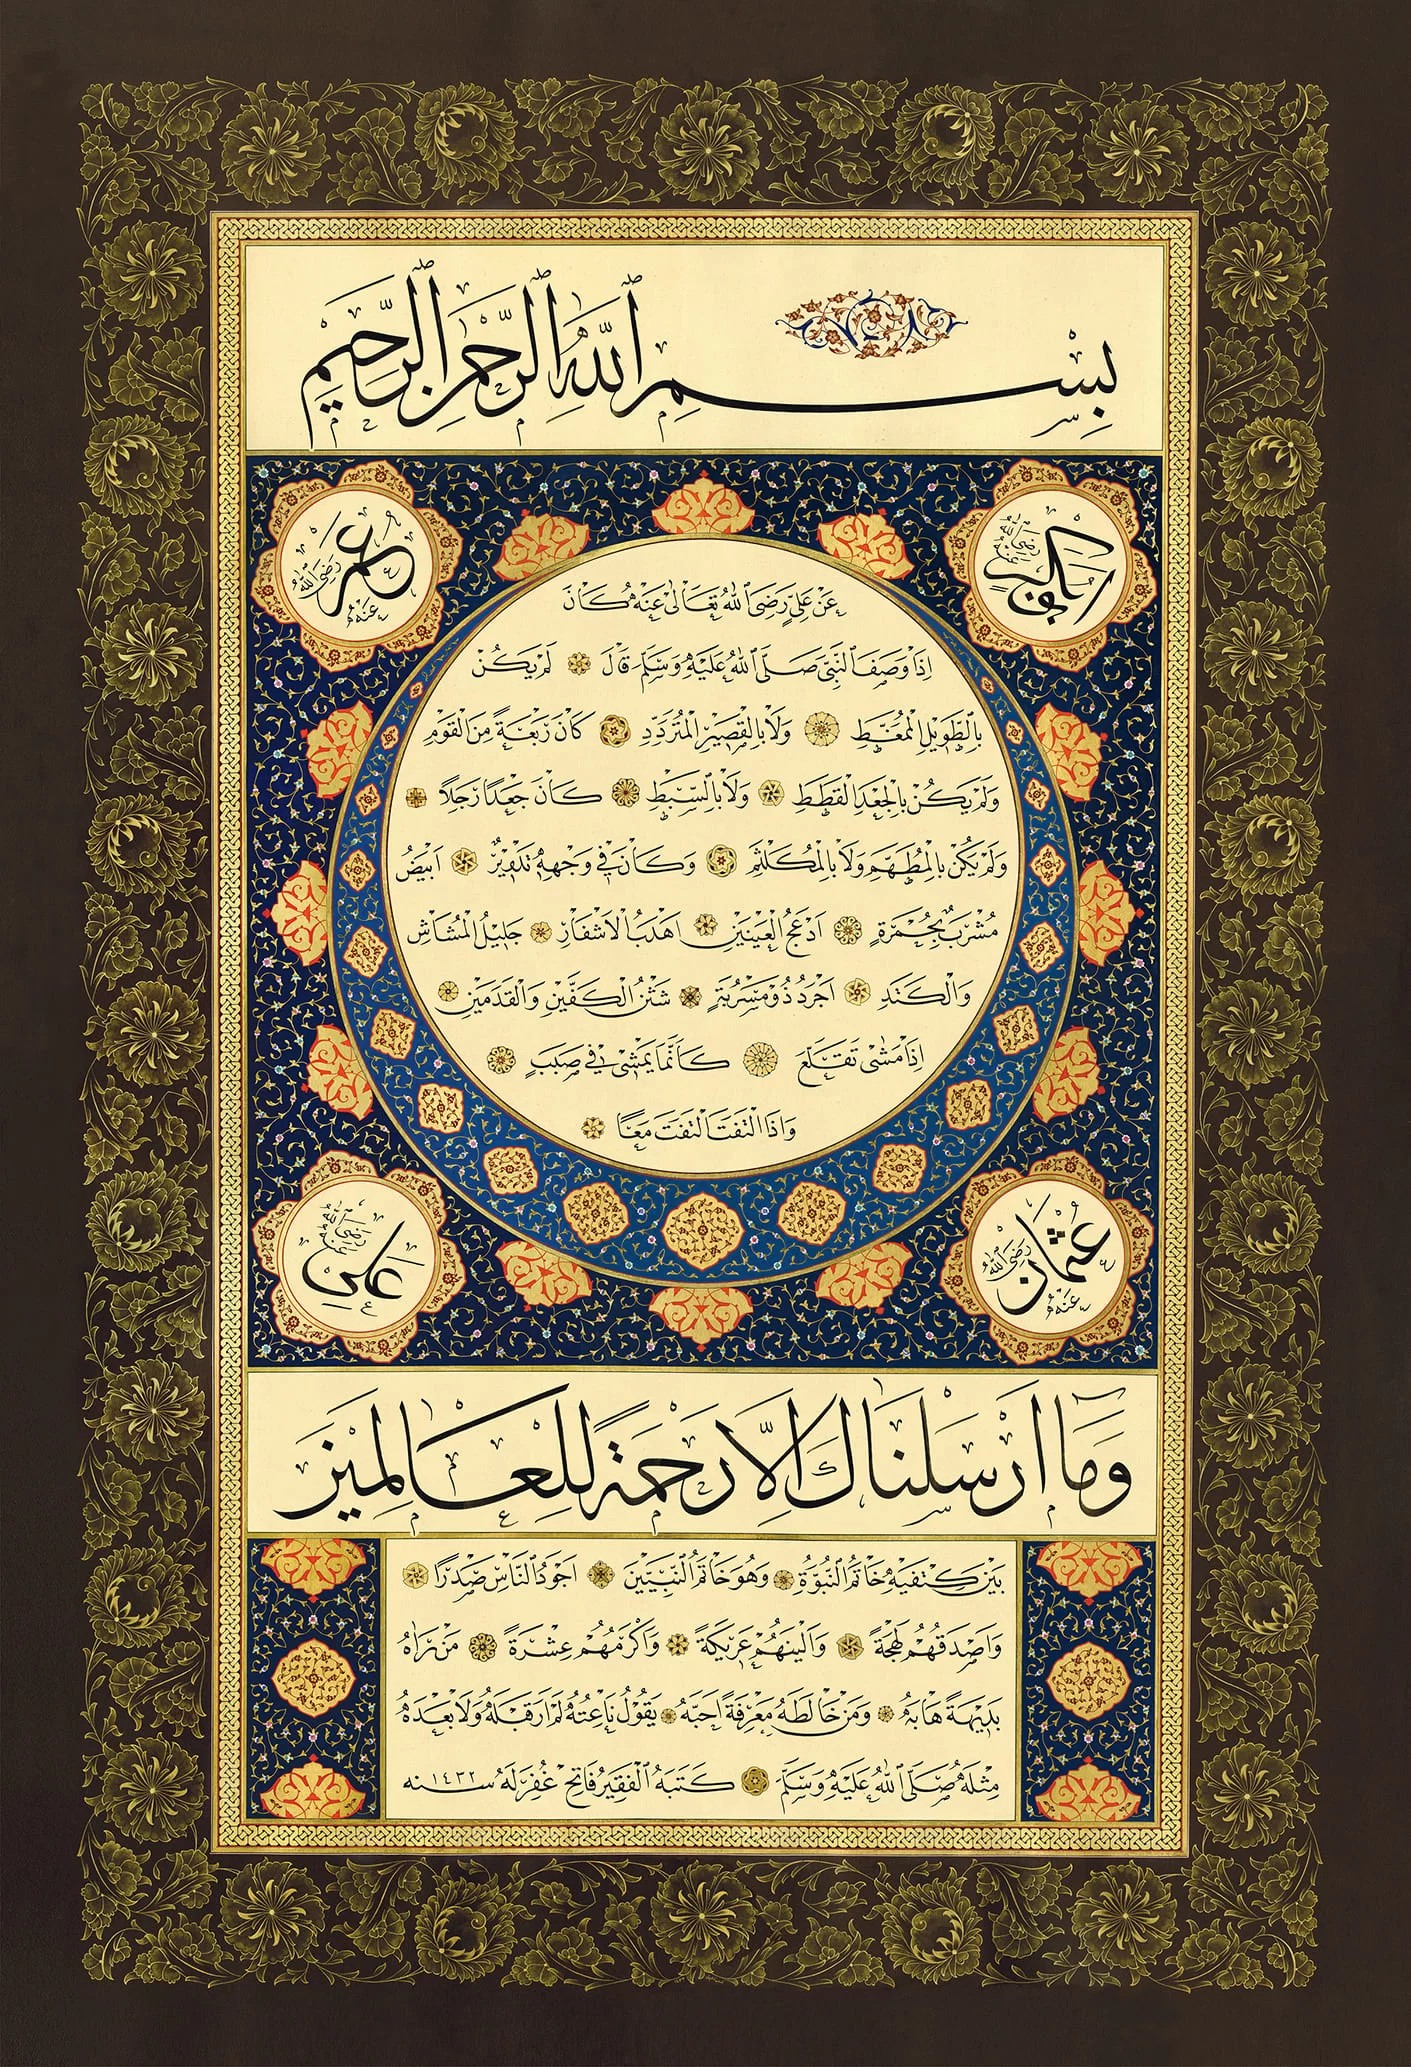 بِسْمِ اللهِ الرَّحْمٰنِ الرَّحِيمِ
ابو بكر رَضِيَ اللهُ عَنْهُ
عمر رَضِيَ اللهُ عَنْهُ
عَنْ عَلِيٍّ رَضِيَ اللهُ تَعَالٰى عَنْهُ كَانَ
اِذَا وَصَفَ النَّبِيَّ صَلَّى اللهُ عَلَيْهِ وَسَلَّمَ قَالَ لَمْ يَكُنْ
بِالطَّوِيلِ الْمُمَّغِطِ وَلَا بِالْقَصِيرِ الْمُتَرَدِّدِ كَانَ رَبْعَةً مِنَ الْقَوْمِ
وَلَمْ يَكُنْ بِالْجَعْدِ الْقَطَطِ وَلَا بِالسَّبْطِ كَانَ جَعْدًا رَجِلًا
وَلَمْ يَكُنْ بِالْمُطَهَّمِ وَلَا بِالْمُكَلْثَمِ وَكَانَ فِي وَجْهِهِ تَدْوِيرٌ اَبْيَضُ
مُشْرَبٌ بِحُمْرَةٍ اَدْعَجُ الْعَيْنَيْنِ اَهْدَبُ الْاَشْفَارِ جَلِيلُ الْمُشَاشِ
وَالْكَتَدِ اَجْرَدُ ذُو مَسْرُبَةٍ شَثْنُ الْكَفَّيْنِ وَالْقَدَمَيْنِ
اِذَا مَشٰى تَقَلَّعَ كَاَنَّمَا يَمْشِي فِي صَبَبٍ
وَاِذَا الْتَفَتَ الْتَفَتَ مَعًا
عُثْمَانُ رَضِيَ اللهُ عَنْهُ
عَلِي رَضِيَ اللهُ عَنْهُ
وَمَا اَرْسَلْنَاكَ اِلَّا رَحْمَةً لِلْعَالَمِينَ
بَيْنَ كَتِفَيْهِ خَاتَمُ النُّبُوَّةِ وَهُوَ خَاتَمُ النَّبِيِّينَ اَجْوَدُ النَّاسِ صَدْرًا
وَاَصْدَقُهُمْ لَهْجَةً وَاَلْيَنُهُمْ عَرِيكَةً وَاَكْرَمُهُمْ عِشْرَةً مَنْ رَاٰهُ
بَدِيهَةً هَابَهُ وَمَنْ خَالَطَهُ مَعْرِفَةً اَحَبَّهُ يَقُولُ نَاعِتُهُ لَمْ اَرَ قَبْلَهُ وَلَا بَعْدَهُ
مِثْلَهُ صَلَّى اللهُ عَلَيْهِ وَسَلَّمَ كَتَبَهُ الْفَقِيرُ فَاتِح غُفِرَ لَهُ سنه ١٤٣٢